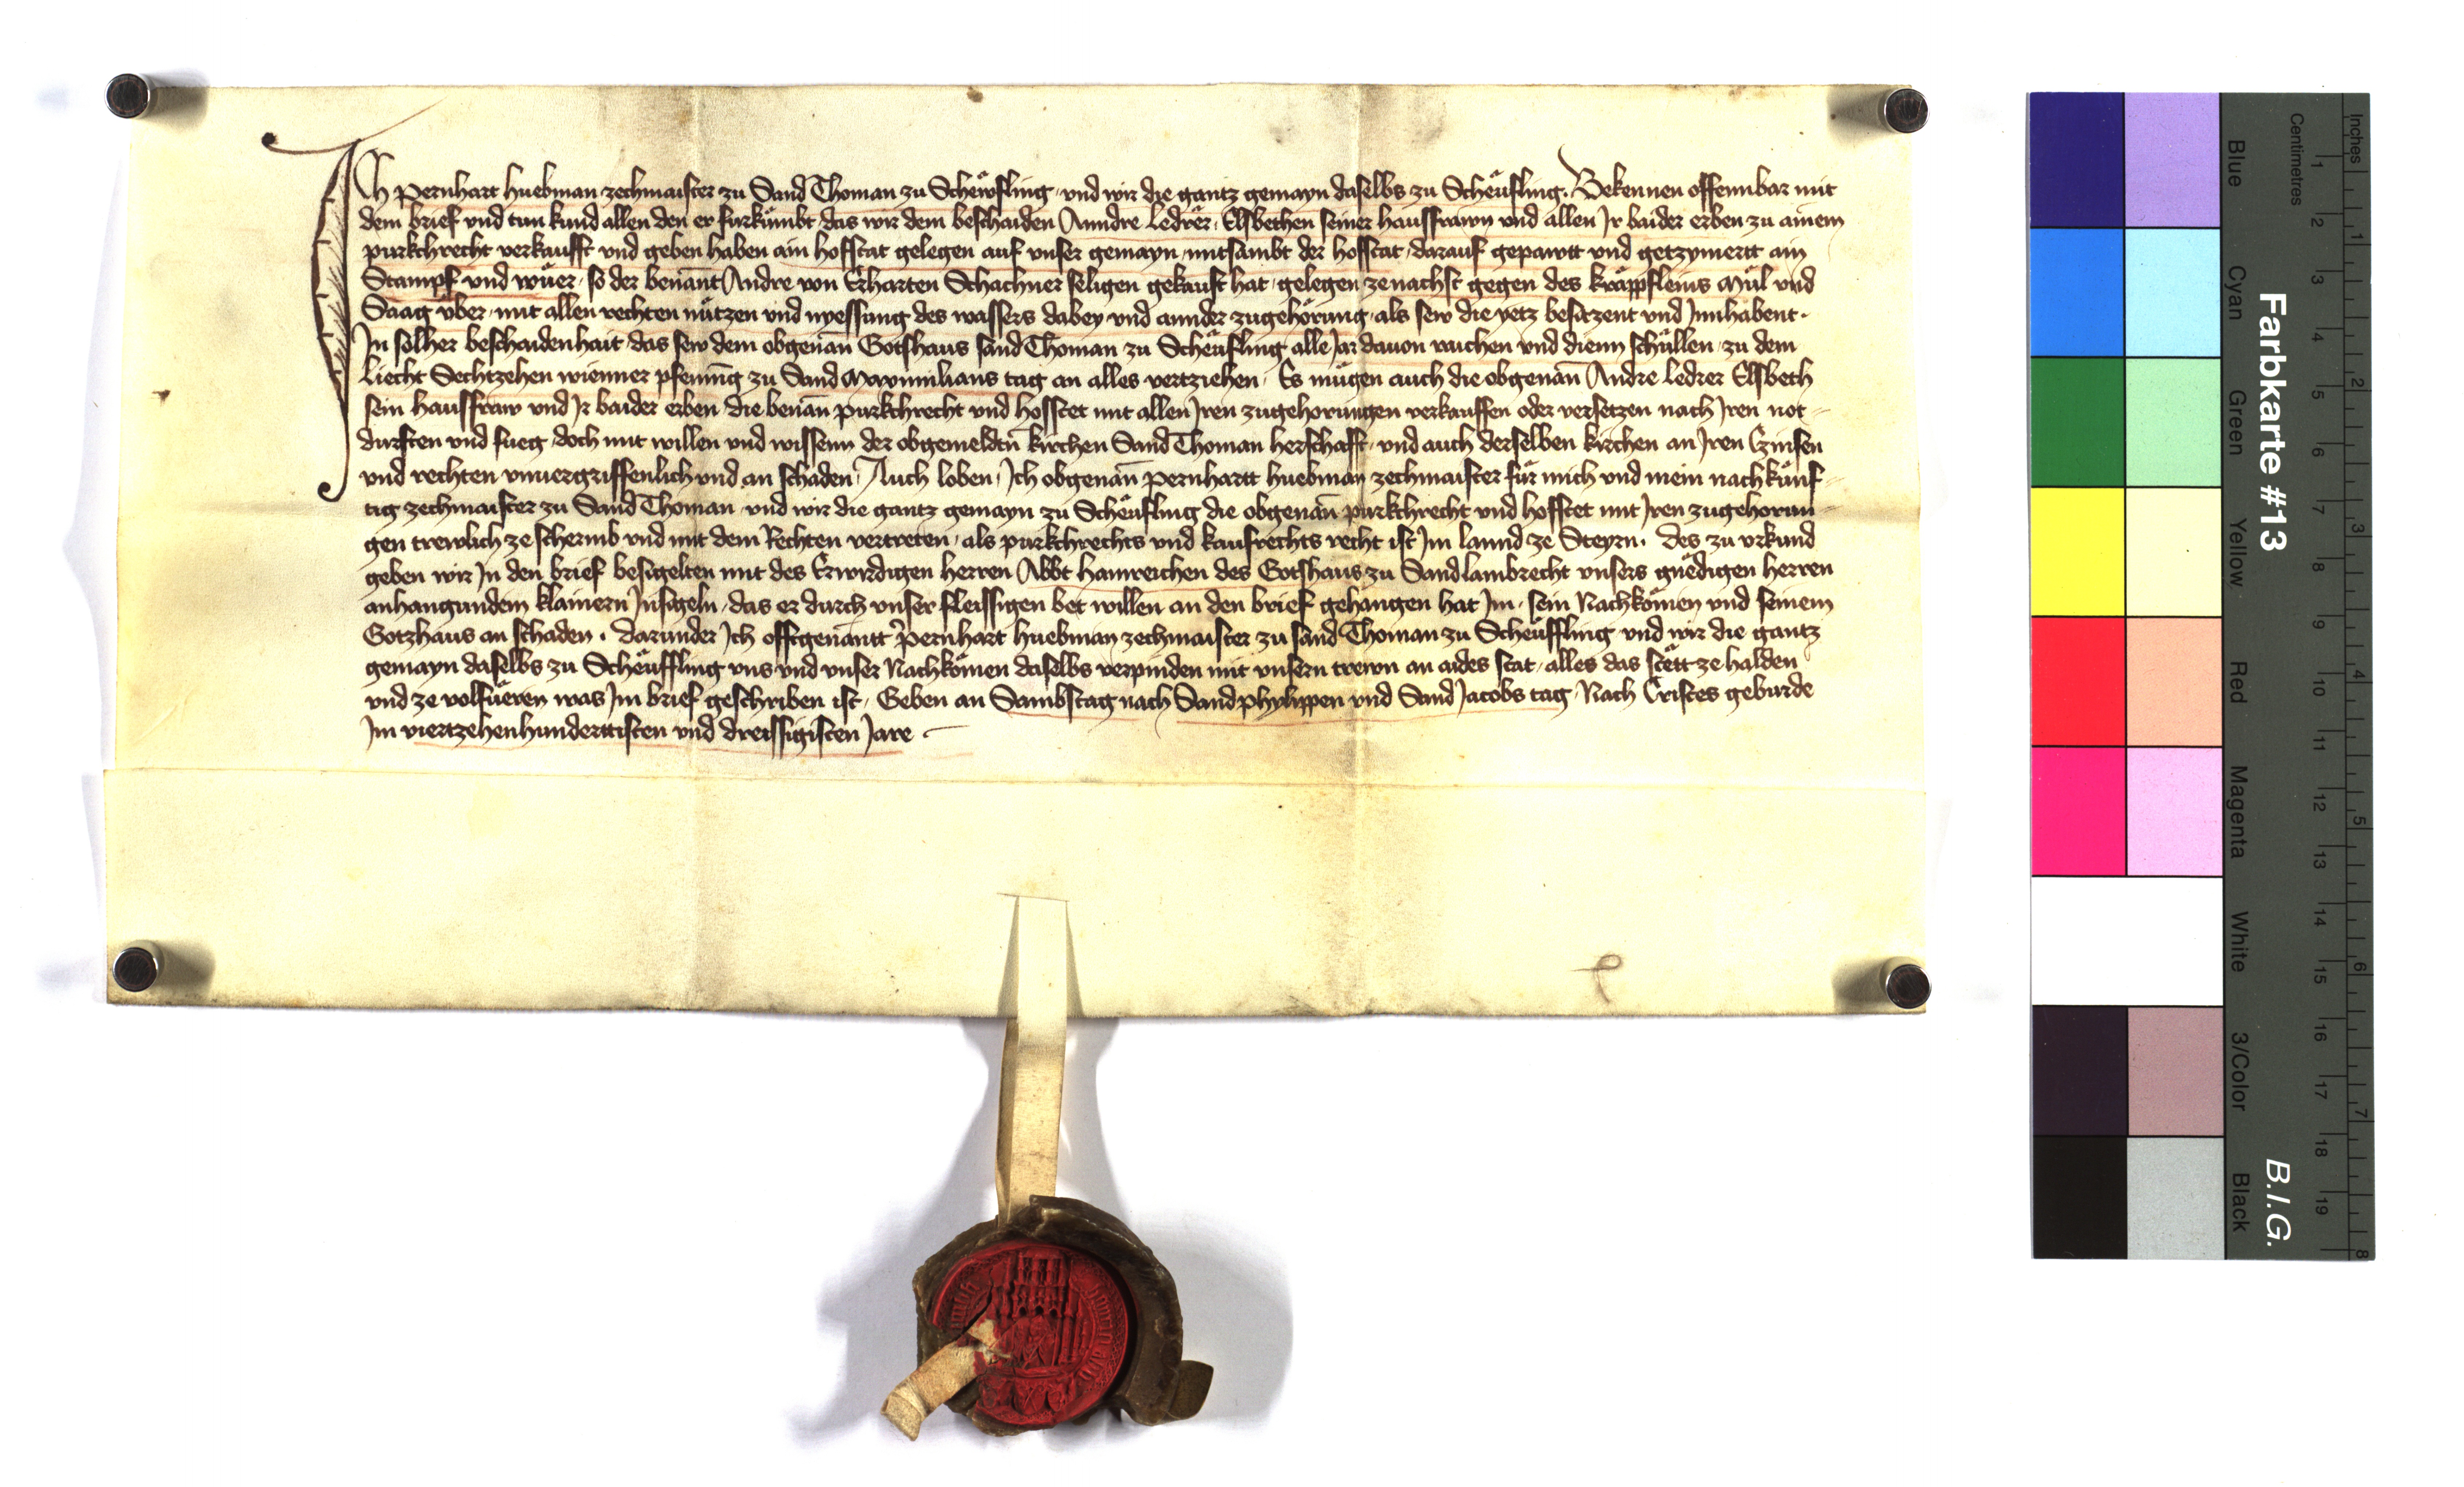 Ich Pernhart Huebman zechmaister zu Sand Thoman zu Scheẃfling und wir die gantz gemayn daselbs zu Scheu̇fling. Bekennen offennbar mit
dem brief und tun kund allen den er furku̇mbt das wir dem beschaiden Anndre Ledrer, Elsbethen seiner hausfrawn und allen Jr baider erben zu ainem
purkchrecht verkaufft und geben haben ain hofstat gelegen auf unser gemayn mitsambt der hofstat darauf gepawtt und getzymertt ain
Stampf und wu̇er so der benant Andre von Erharten Schachner seligen gekauft hat gelegen zenachst gegen des Mu̇l und
Saag vber mit allen rechten nu̇tzen und nyessung des wassers dabey und annder zugehörung als sew die yetz besitzent und Jnnhabent.
Jn solher beschaidenhait das sew dem obgenan̄ Gotshaus sand Thoman zu Scheu̇fling alle Jar dauon raichen und dienn schu̇llen zu dem
Liecht Sechtzehen wienner pfennīg zu Sand Maximilians tag an alles vertziehen. Es mu̇gen auch die obgenan̄ Andre Ledrer Elsbeth
sein hausfraw und Jr baider erben die benan̄ purkchrecht und hofstet mit allen Jren zugehorungen verkauffen oder versetzen nach Jren not-
durften und fueg doch mit willen und wissenn der obgemeldtn̄ kirchen Sand Thoman herschafft und auch derselben kirchen an Jren Czinsen
und rechten vnuergriffenlich und an schaden. Auch loben Jch obgenan̄ Pernhartt Huebman zechmaister fu̇r mich und mein nachku̇nf-
tig zechmaister zu Sand Thoman und wir die gantz gemayn zu Scheu̇fling die obgenan̄ purkchrecht und hofstet mit Jren zugehorun-
gen trewlich ze schermb und mit dem Rechten vertreten als purkchrechts und kaufrechts recht ist Jm lannd ze Steyrn. Des zu vrkund
geben wir Jn den brief besigelten mit des Erwirdigen herren Abbt Hainreichen des Gotshaus zu Sand Lambrecht unsers gnedigen herren
anhangundem klainern Jnsigeln das er durch unser fleissigen bet willen an den brief gehangen hat Jm, sein Nachkömen und seinem
Gotzhaus an schaden. Darunder Jch offtgenantt Pernhart Huebman zechmaister zu sand Thoman zu Scheu̇ffling und wir die gantz
gemayn daselbs zu Scheu̇ffling uns und unser Nachkömen daselbs verpinden mit unsern trewn an aides stat alles das stett ze halden
und ze volfu̇eren was Jm brief geschriben ist. Geben an Sambstag nach Sand Phylippen und Sand Jacobs tag Nach Cristes geburde
Jm viertzehenhunderttisten und dreissigisten Jare
Farbkarte #13
B.I.G.
Inches 1 2 3 4 5 6 7 8
Centimetres 1 2 3 4 5 6 7 8 9 10 11 12 13 14 15 16 17 18 19
Blue Cyan Green Yellow Red Magenta White 3/Color Black